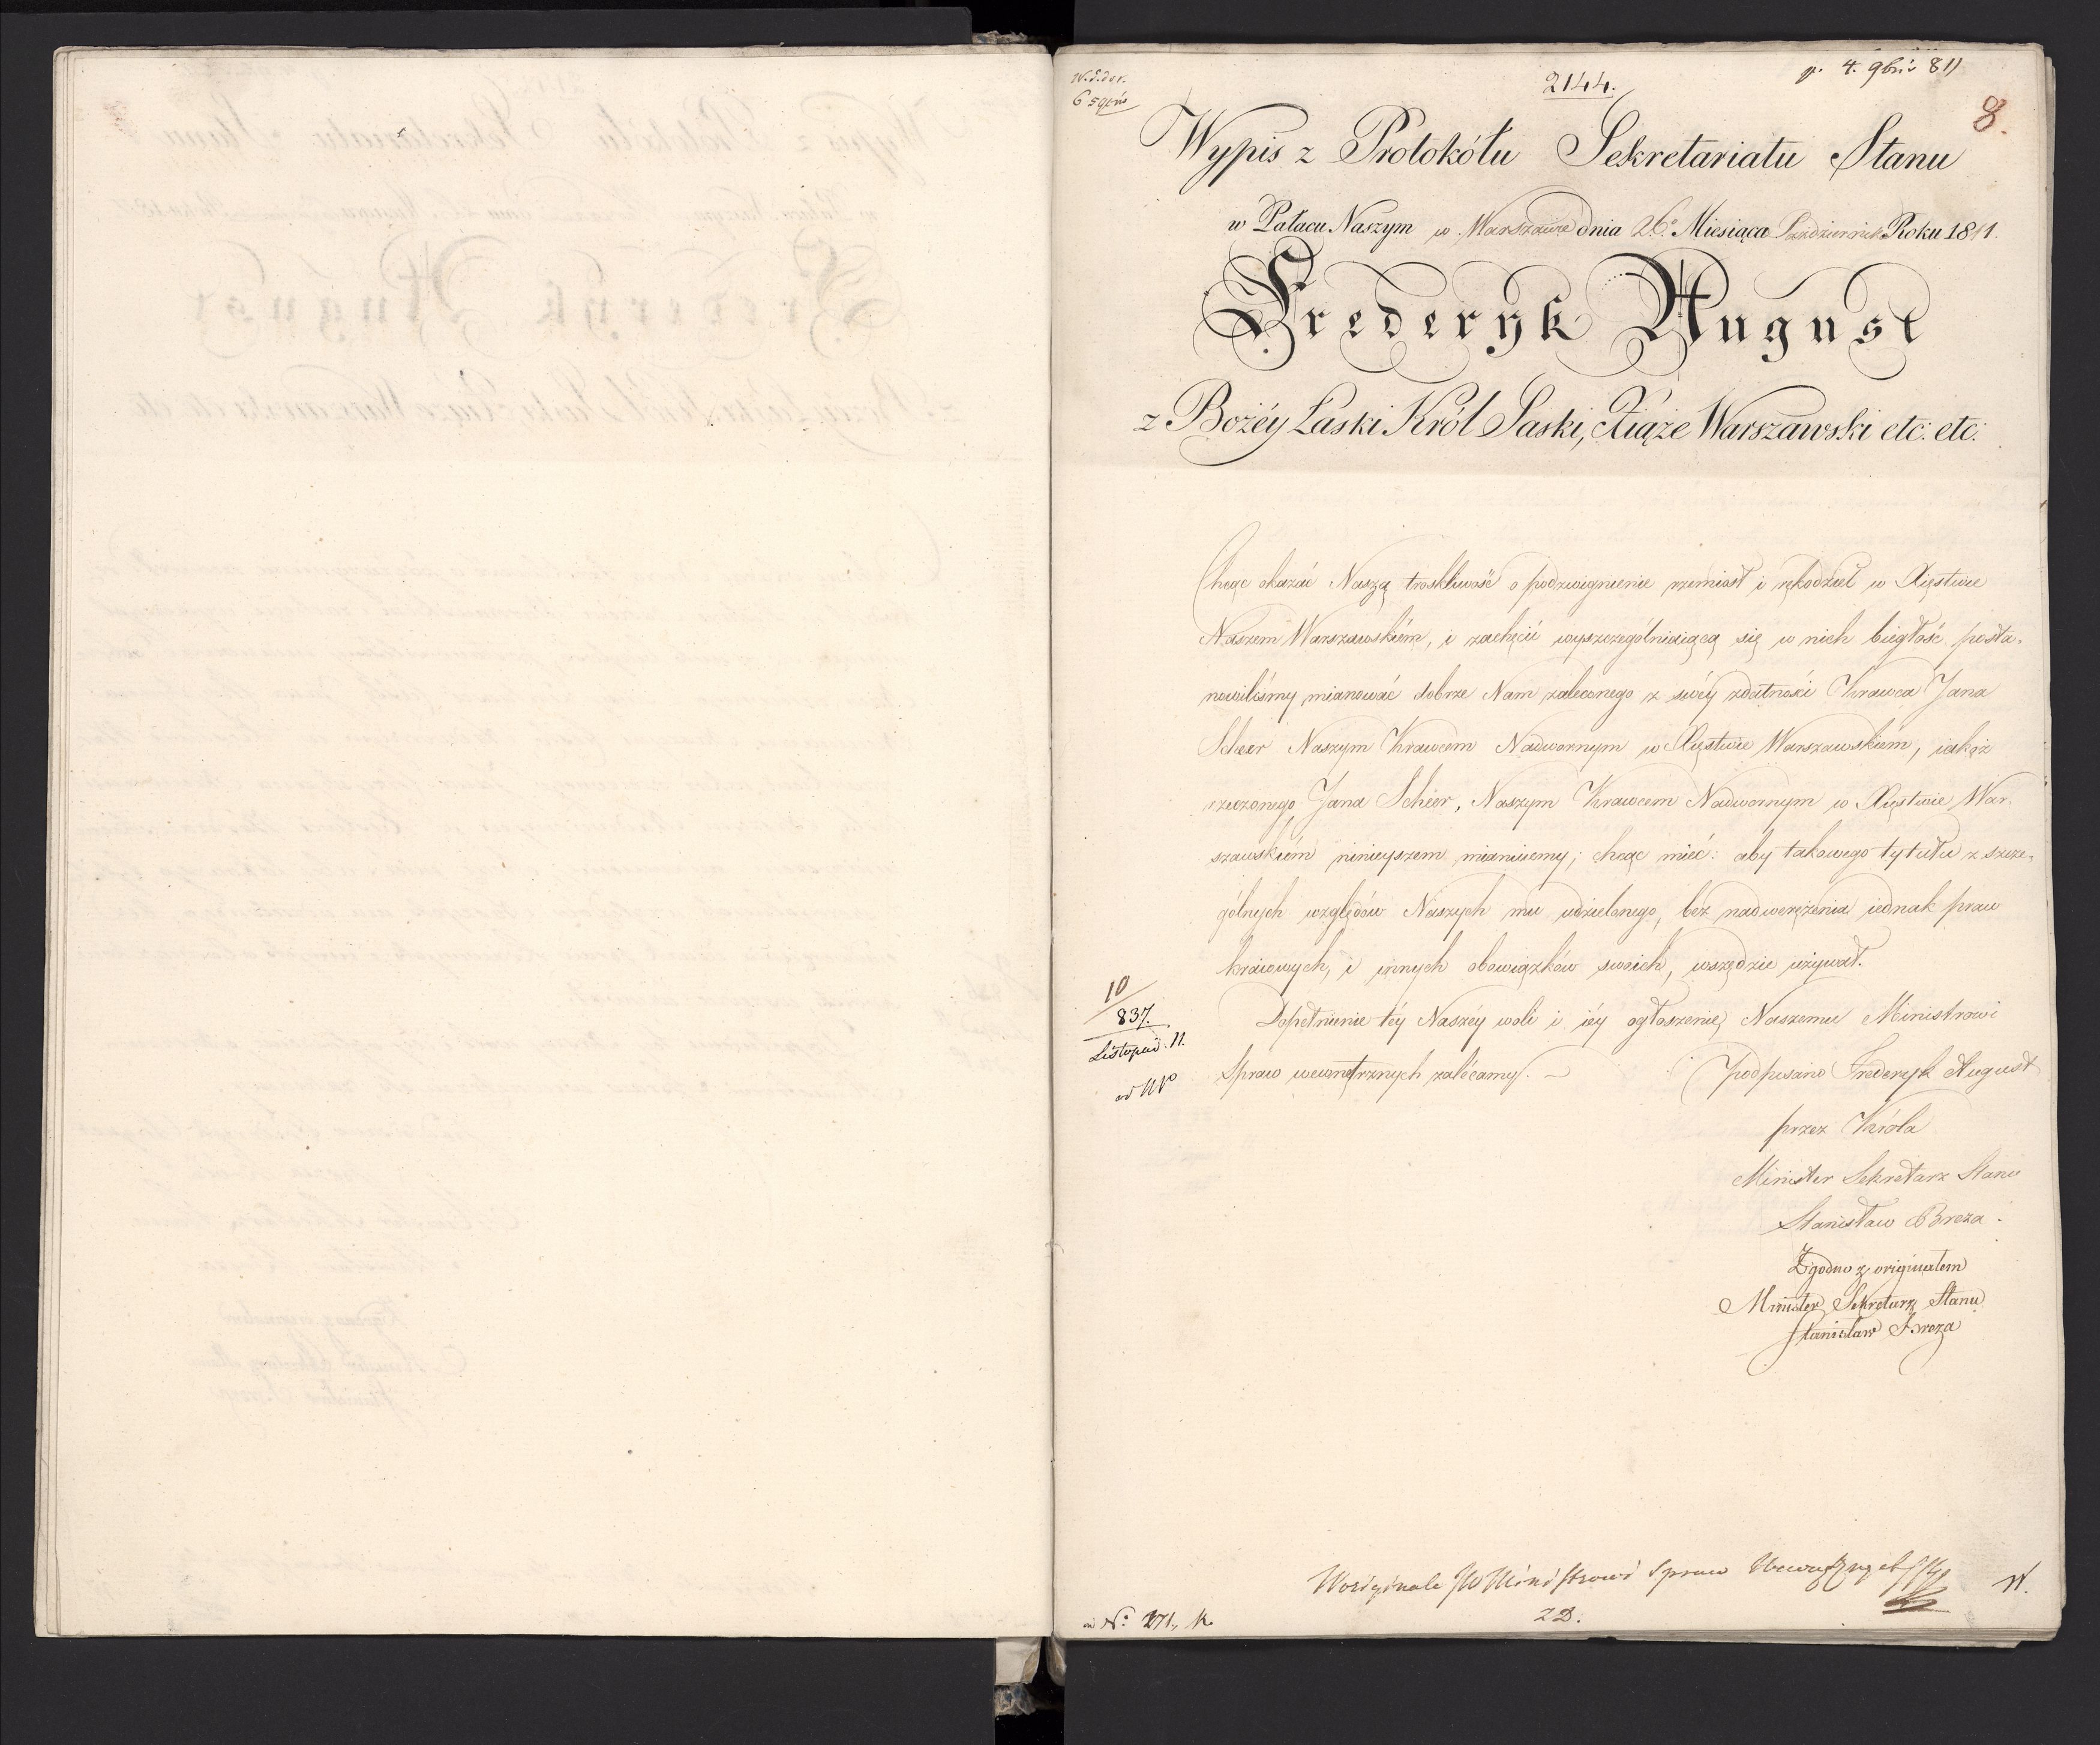 2144.
p. 4. 9bris 811
8.
Wypis z Protokółu Sekretariatu Stanu
w Pałacu Naszym w Warszawie dnia 26° Miesiąca Październik Roku 1811.
Frederyk August
z Bożéy Łaski Król Saski, Xiąże Warszawski etc: etc:
Chcąc okazać Naszą troskliwość o podzwignienie rzemiosł i rękodzieł w Xięstwie
Naszem Warszawskiém, i zachęcić wyszczególniaiącą się w nich biegłość posta-
nowiliśmy mianować dobrze Nam zaleconego z swéy zdatności Krawca Jana
Scheer Naszym Krawcem Nadwornym w Xięstwie Warszawskiém, iakóż
rzeczonego Jana Scheer, Naszym Krawcem Nadwornym w Xięstwie War-
szawskiém ninieyszem mianuiemy; chcąc mieć: aby takowego tytułu z szcze-
gólnych względów Naszych mu udzielonego, bez nadwerężenia iednak praw
kraiowych, i innych obowiązków swoich, wszędzie używał.
Dopełnienie téy Naszéy woli i iéy ogłoszenie, Naszemu Ministrowi
Spraw wewnętrznych zalécamy. —
(podpisano) Frederyk August
przez Króla
Minister Sekretarz Stanu
Stanisław Breza.
Zgodno z originałem
Minister Sekretarz Stanu
Stanisław Breza
10
837.
Listopad. 11.
W originale JW Ministrowi Spraw Wewnętrznych
ZD.
N.
ad N° 271. K.